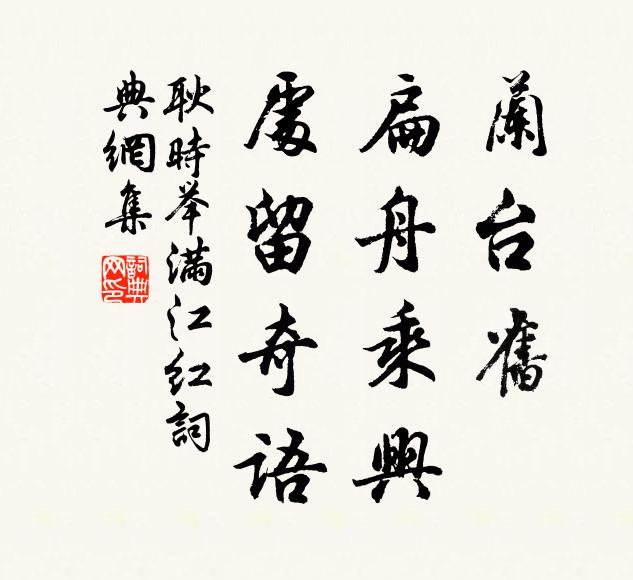 蘭台舊
扁舟乘興
處留奇語
耿時举满江红詞
典網集
詞典网印